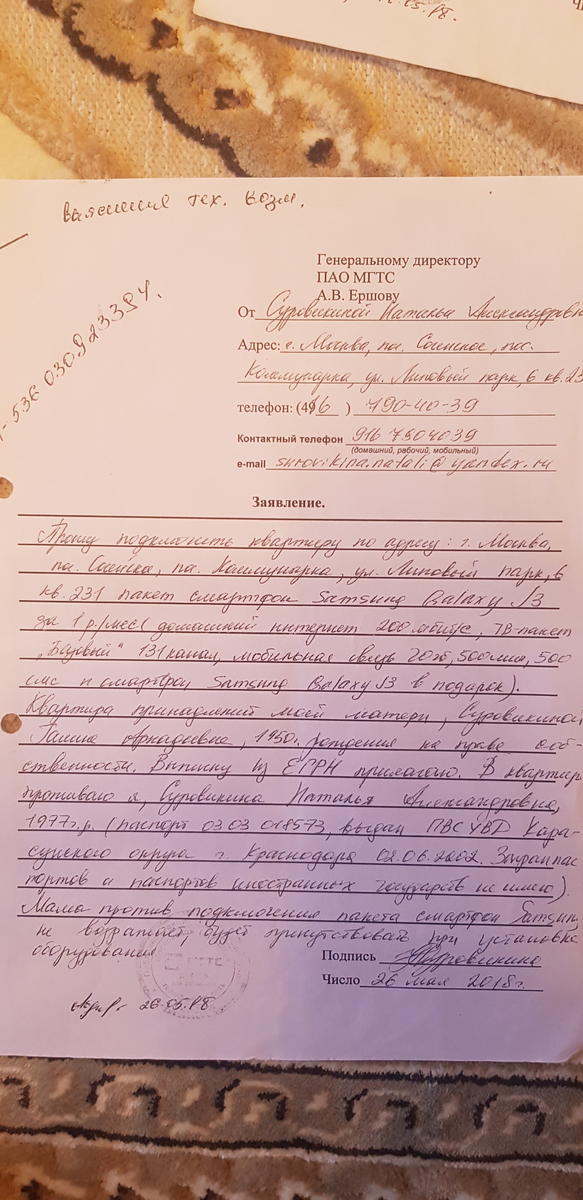 05.18.
выяснения тех. возм.
Генеральному директору
ПАО МГТС
А.В. Ершову
От Суровикиной Наталья Александровн
Адрес: г. Москва, пос. Сосенское, пос.
Коммунарка, ул. Липовый парк, 6 кв. 23
телефон: (496) 790-40-39
Контактный телефон 916 7904039
(домашний, рабочий, мобильный)
e-mail surovikina.natali@yandex.ru
536 030923394.
Заявление.
Прошу подключить квартиру по адресу: г. Москва,
пос. Коммунарка, ул. Липовый парк, 6
кв. 231 пакет смартфон Samsung Galaxy J3
за 1 р./мес (домашний интернет 200 мбит/с, ТВ-пакет
„Базовый" 131 канал, мобильная связь 20 гб, 500 мин, 500
смс и смартфон Samsung Galaxy J3 в подарок).
Квартира принадлежит моей матери, Суровикиной
Галине Аркадиевне, 1950г. рождения на праве соб-
ственности. Выписку из ЕГРН прилагаю. В квартире
проживаю я, Суровикина Наталья Александровна,
1977г.р. (паспорт 03 03 018573, выдан ПВС УВД Кара-
сунского округа г. Краснодара 02.06.2002. Загранпас
портов и паспортов иностранных государств не имею).
Мама против подключения пакета смартфон Samsung
не возражает, будет присутствовать при установке
оборудования
Подпись Суровикина
Число 26 мая 2018г.
МГТС
26.05.18